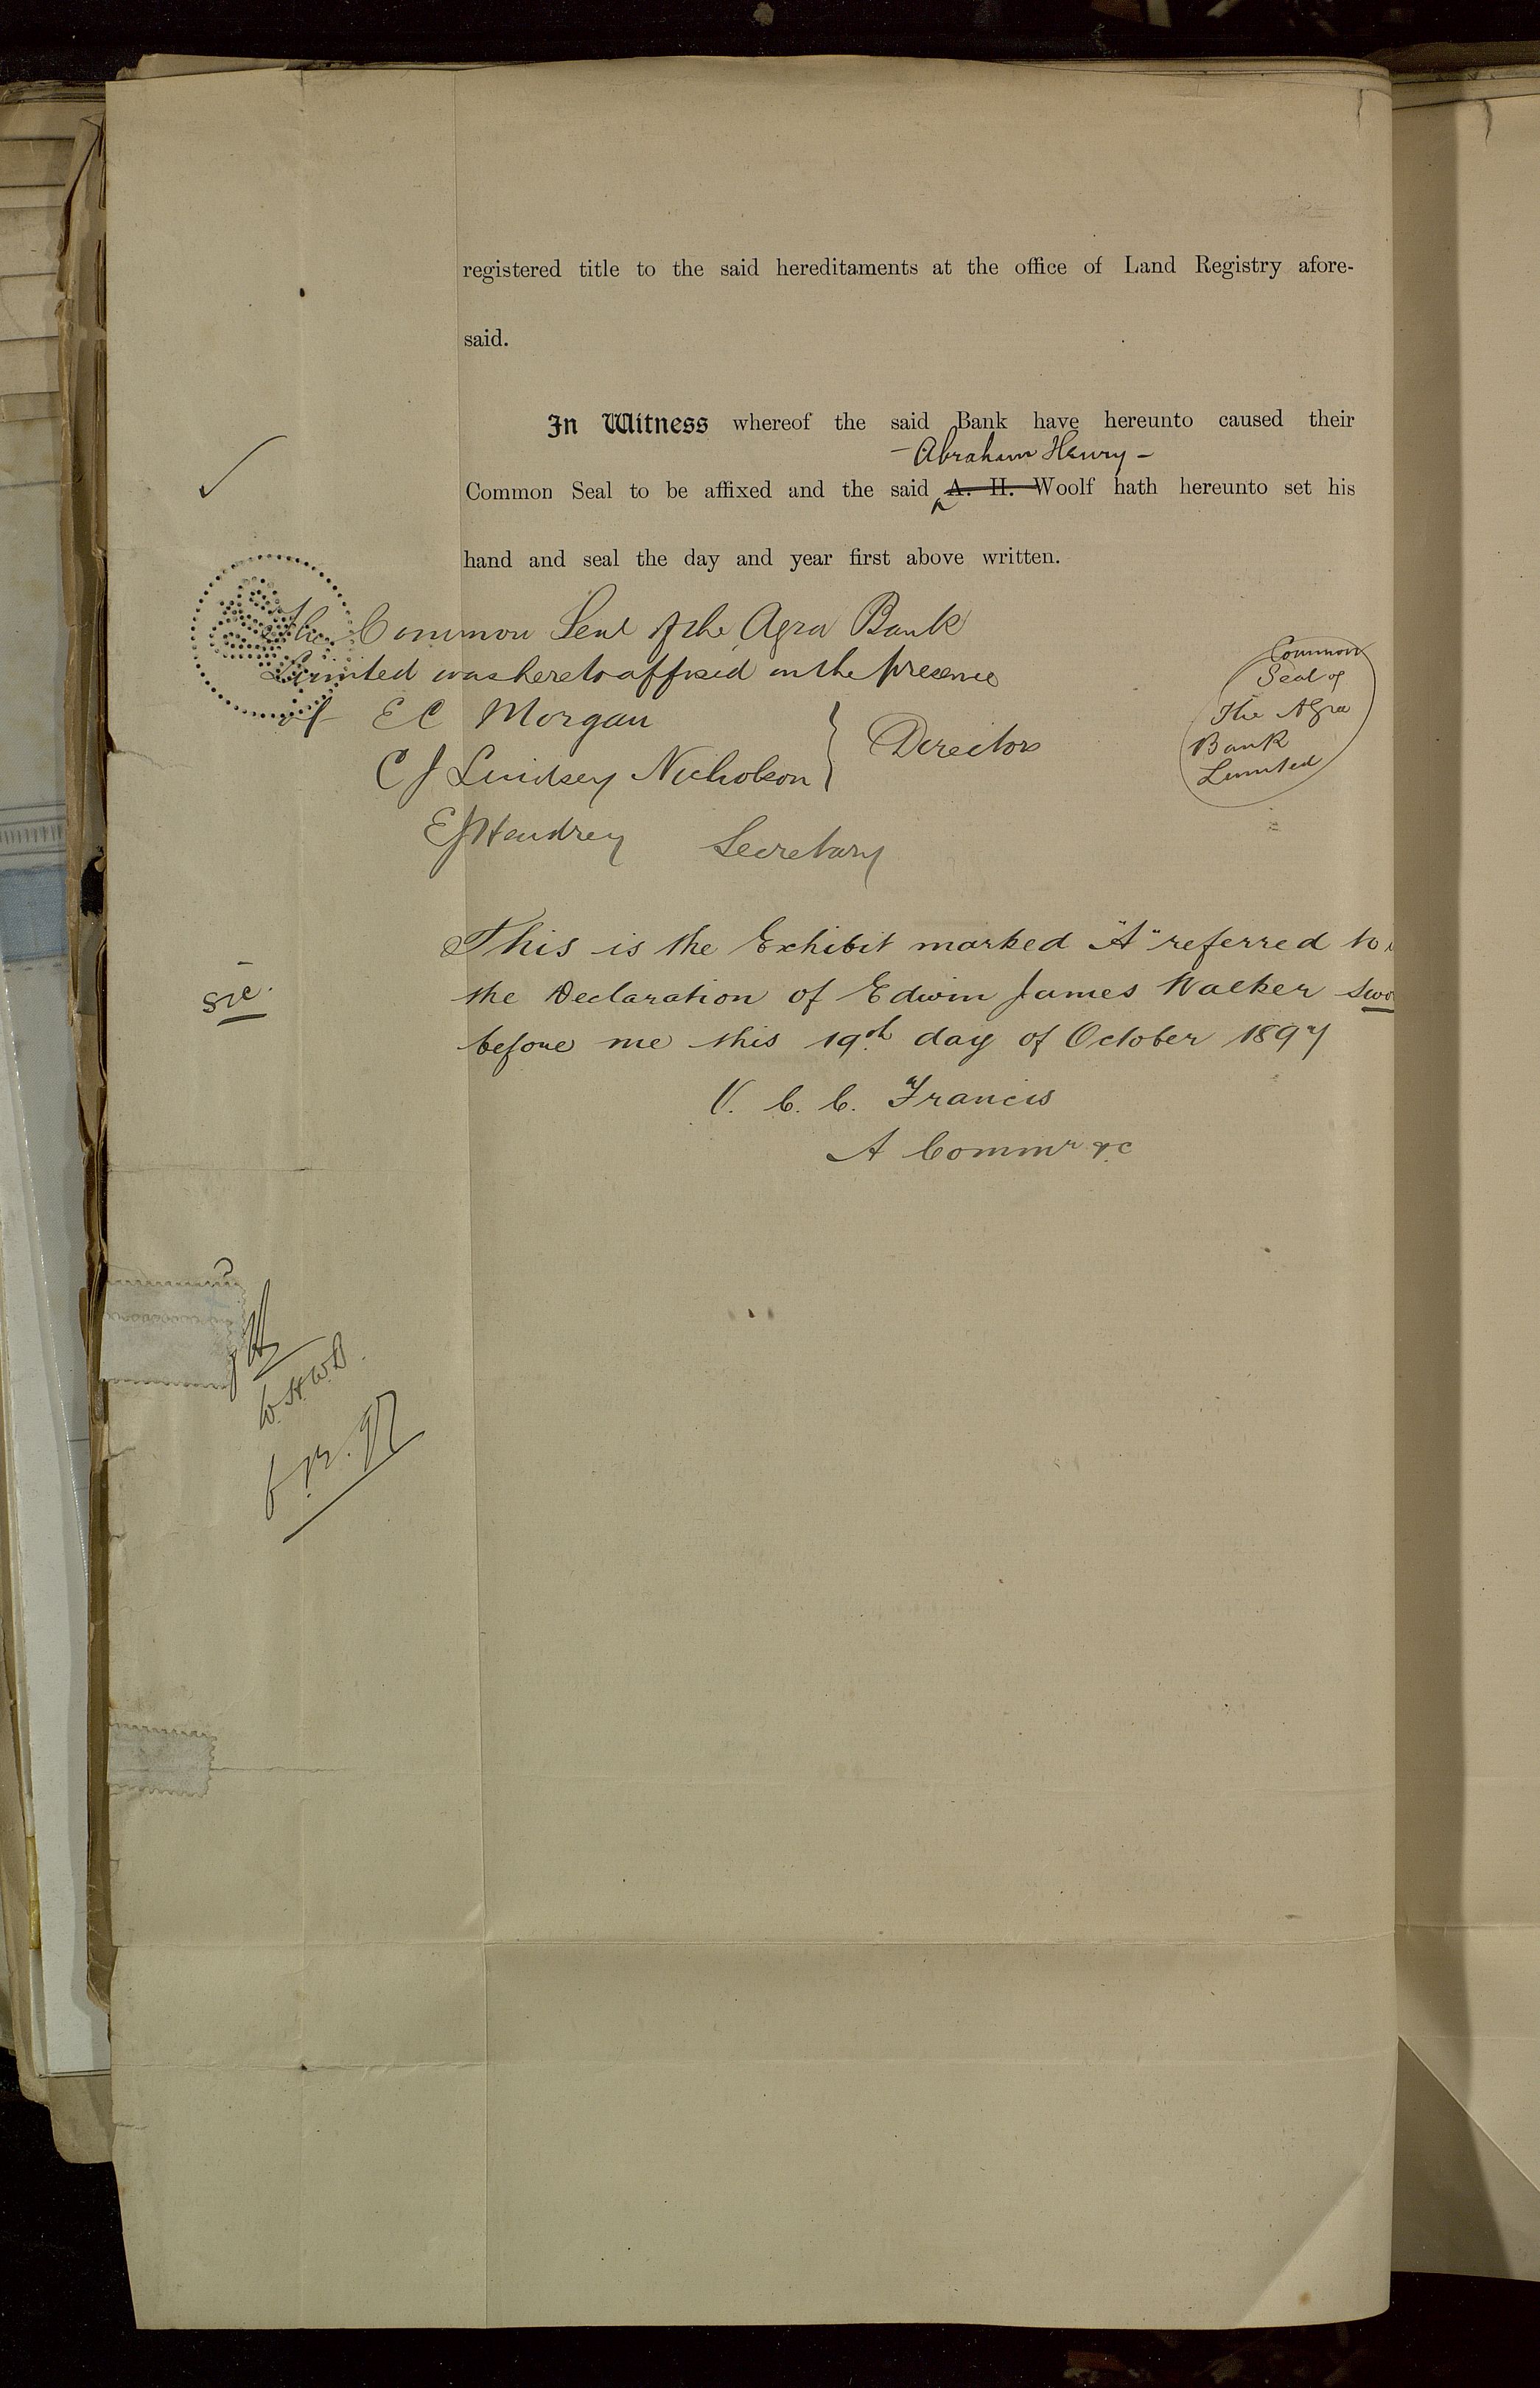 registered title to the said hereditaments at the office of Land Registry afore-
said.
In Witness whereof the said Bank have hereunto caused their
- Abraham Henry -
Common Seal to be affixed and the said A. H. Woolf hath hereunto set his
hand and seal the day and year first above written.
The Common Seal of the Agra Bank
Limited was hereto affixed in the presence
of E C Morgan
C J Lindsey Nicholson } Directors
E J Hendrey Secretary
Common
Seal of
The Agra
Bank
Limited
This is the Exhibit marked "A" referred to
sic.
the Declaration of Edwin James Walker swo
before me this 19th day of October 1897
V. C. C. Francis
A Commr &c
W.H.W.D.